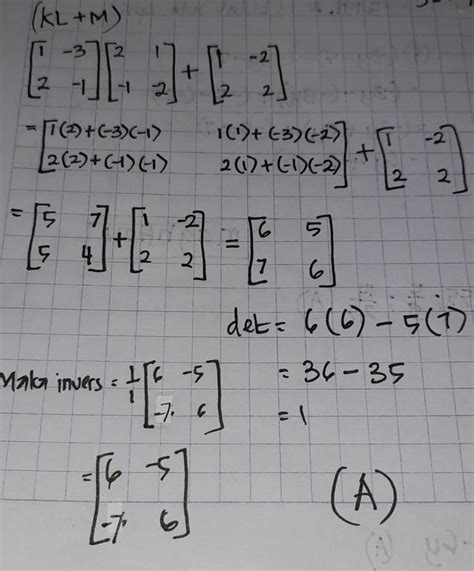 (KL + M)
[1 -3; 2 -1] [2 1; -1 -2] + [1 -2; 2 2]
= [1(2)+(-3)(-1) 1(1)+(-3)(-2); 2(2)+(-1)(-1) 2(1)+(-1)(-2)] + [1 -2; 2 2]
= [5 7; 5 4] + [1 -2; 2 2] = [6 5; 7 6]
det = 6(6) - 5(7)
= 36 - 35
= 1
Maka invers = 1/1 [6 -5; -7 6]
= [6 -5; -7 6]
(A)
(A)